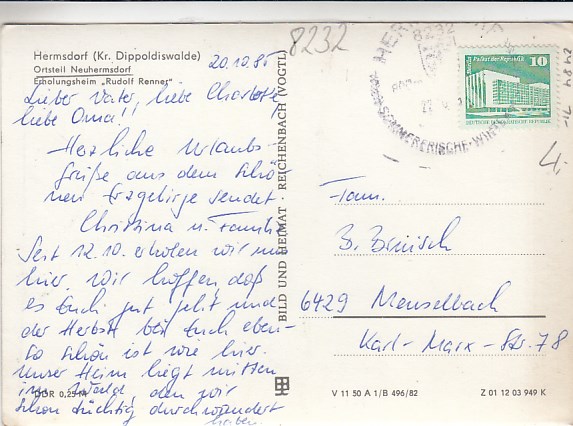 Hermsdorf (Kr. Dippoldiswalde)
Ortsteil Neuhermsdorf
Erholungsheim „Rudolf Renner"
20.10.85
Lieber Vater, liebe Charlotte
liebe Oma!!
Herzliche Urlaubs-
grüße aus dem schö-
nen Erzgebirge sendet
Christina u. Familie
Seit 12.10. erholen wir uns
hier. Wir hoffen, daß
es Euch gut geht und
der Herbst bei Euch eben-
so schön ist wie hier.
Unser Heim liegt mitten
im Walde, den wir
schon tüchtig durchwandert
haben.
DDR 0,25 M
BILD UND HEIMAT REICHENBACH (VOGTL
8232
8232
SOMMERFRISCHE
Palast der Republik
10
DEUTSCHE DEMOKRATISCHE REPUBLIK
4,-
Fam.
6429 Meuselbach
Karl-Marx-Str. 78
V 11 50 A 1/B 496/82
Z 01 12 03 949 K